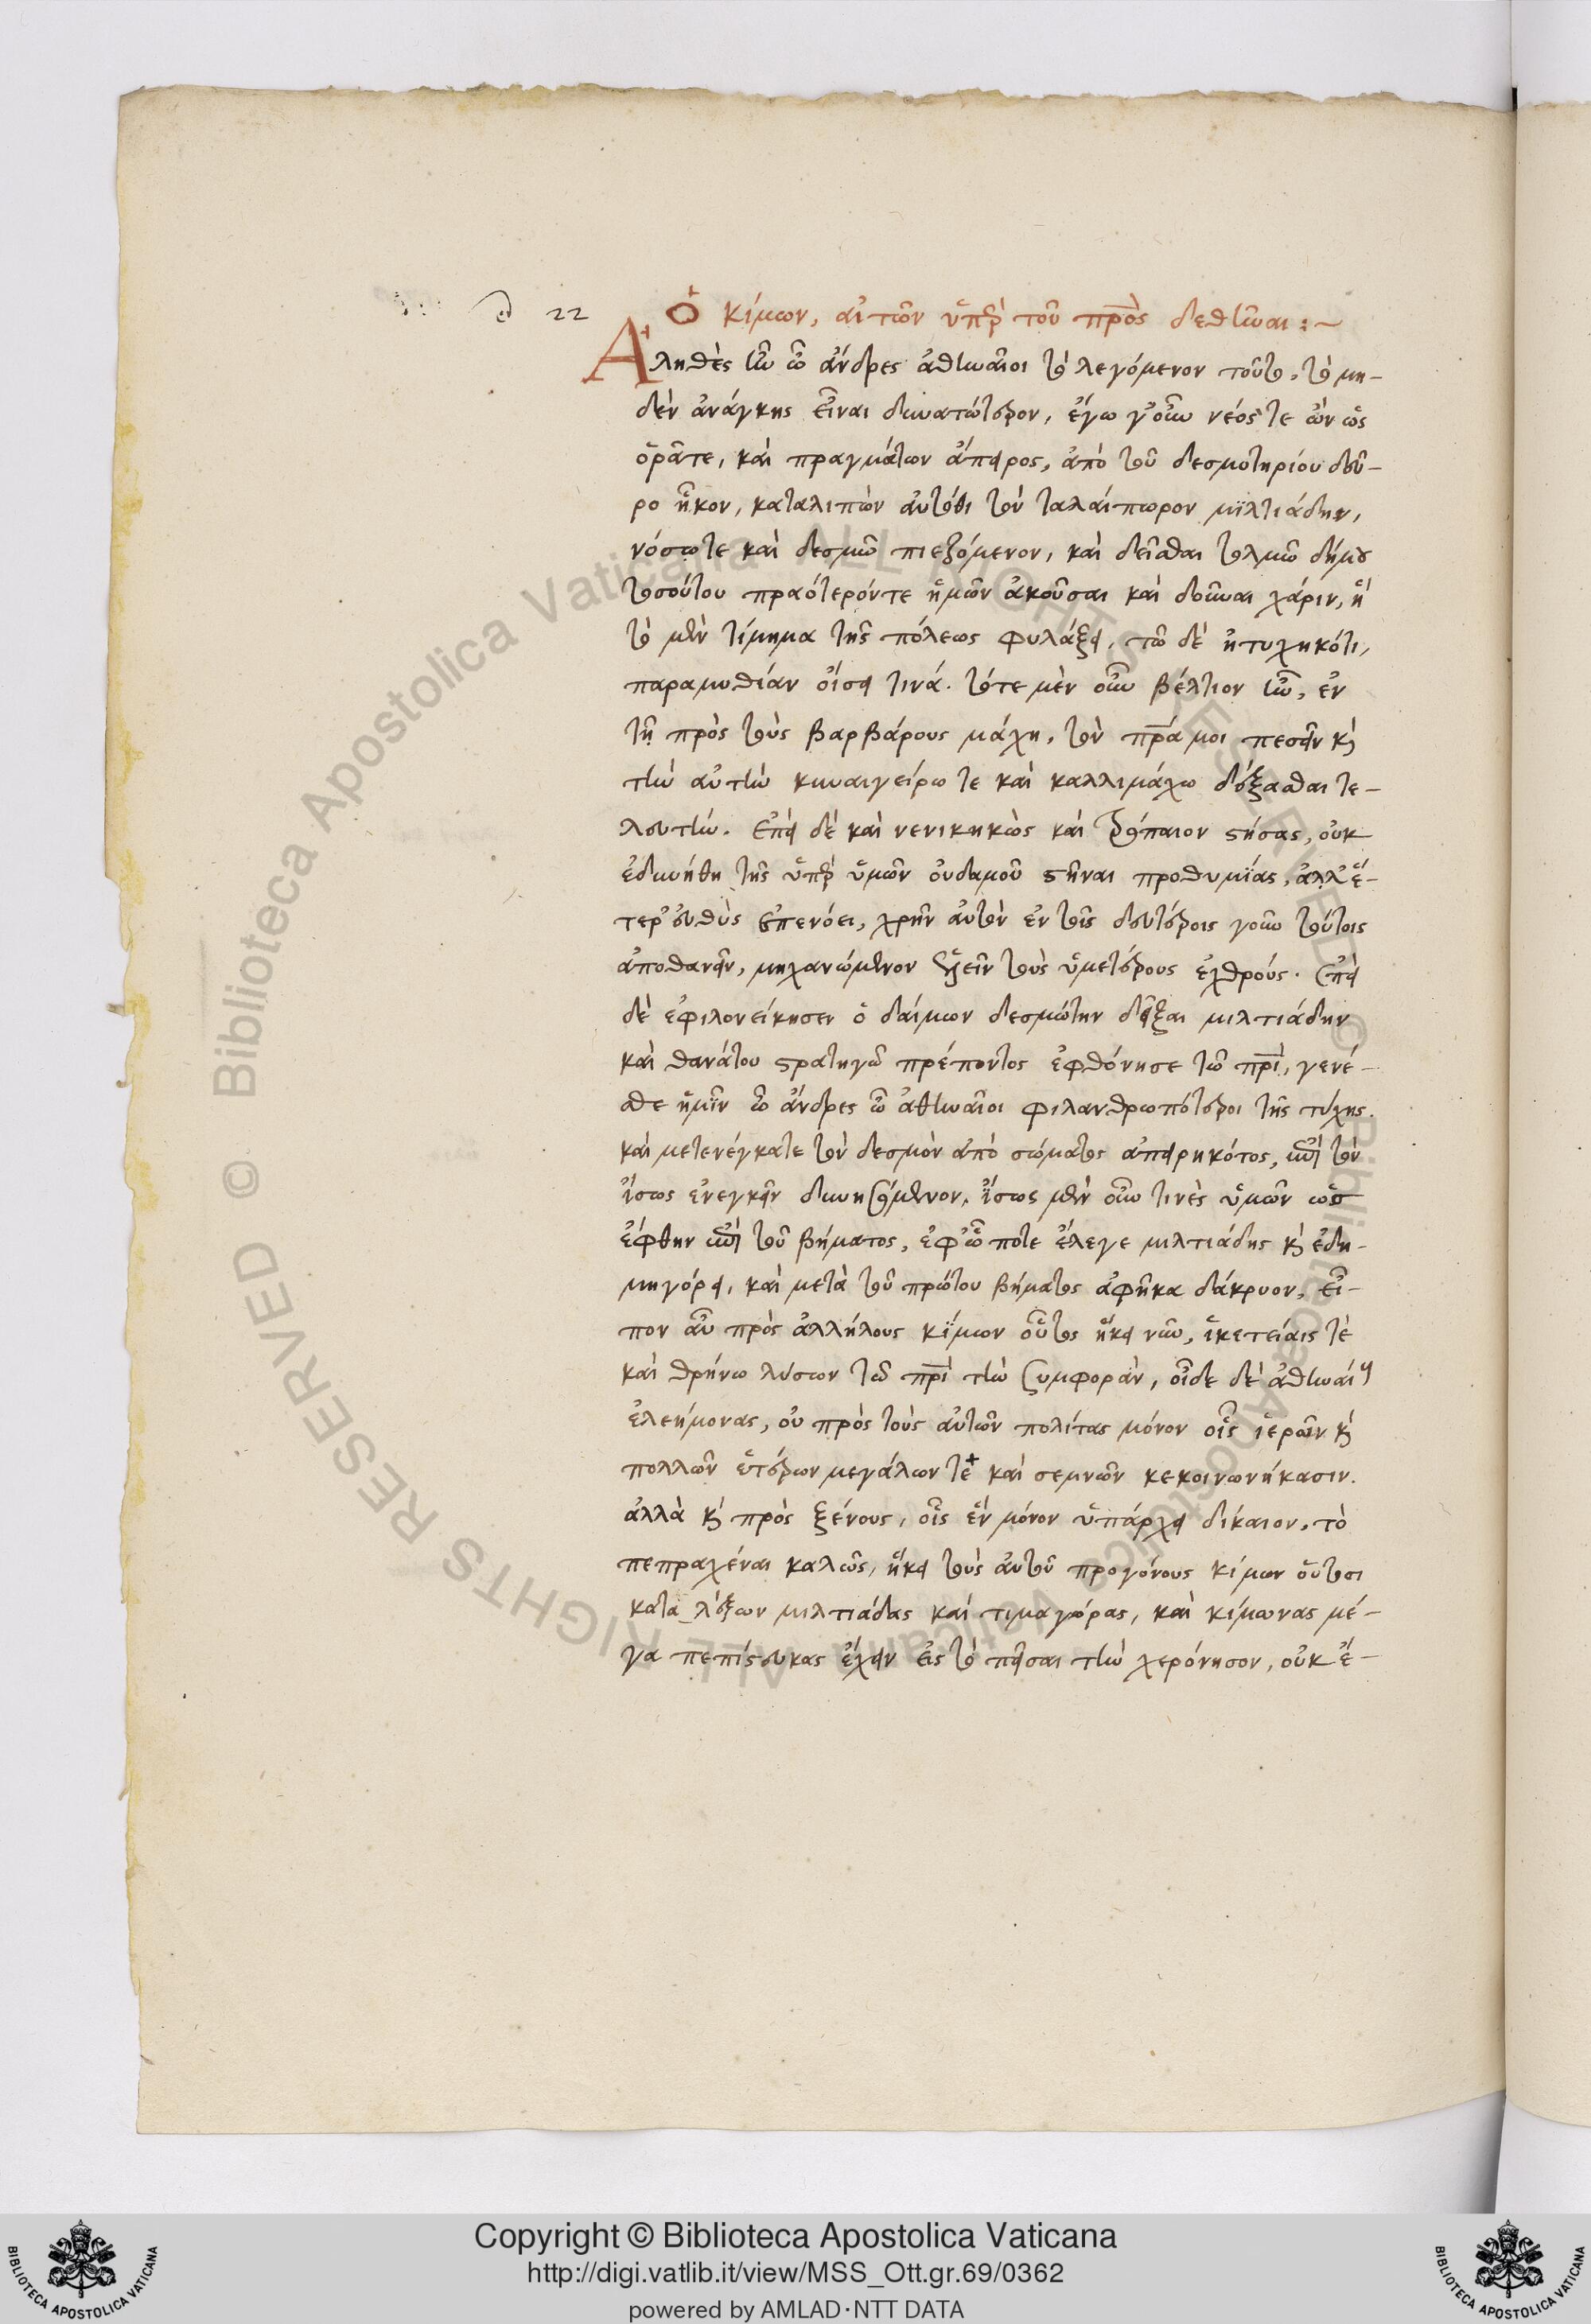 22
Ὁ κίμων, αἰτῶν ὑπὲρ τοῦ πρὸς δεθῆναι:~
Ἀληθὲς ἦν ὦ ἄνδρες ἀθηναῖοι τὸ λεγόμενον τοῦτο, τὸ μη-
δὲν ἀνάγκης εἶναι δυνατώτερον, ἐγὼ γ' οὖν νέος τε ὢν ὡς
ὁρᾶτε, καὶ πραγμάτων ἄπειρος, ἀπὸ τοῦ δεσμωτηρίου δεῦ-
ρο ἧκον, καταλιπὼν αὐτόθι τὸν ταλαίπωρον μϊλτιάδην,
νόσω τε καὶ δεσμῶ πιεζόμενον, καὶ δεῖσθαι τολμῶ δήμου
τοσούτου πραότερόν τε ἡμῶν ἀκοῦσαι καὶ δοῦναι χάριν, ἣ
τὸ μὲν τίμημα τῆς πόλεως φυλάξει, τῶ δὲ ἠτυχηκότι,
παραμυθίαν οἴσει τινά. τότε μὲν οὖν βέλτιον ἦν, ἐν
τῆ πρὸς τοὺς βαρβάρους μάχη, τὸν πρα μοι πεσεῖν καὶ
τὴν αὐτὴν κυναιγείρω τε καὶ καλλιμάχω δέξασθαι τε-
λευτὴν. ἐπεὶ δὲ καὶ νενικηκὼς καὶ τρόπαιον στήσας, οὐκ
ἐδυνήθη τῆς ὑπὲρ ὑμῶν οὐδαμοῦ στῆναι προθυμίας, ἀλλ' ἕ-
τερ' εὐθὺς ἐπενόει, χρῆν αὐτὸν ἐν τοῖς δευτέροις γοῦν τούτοις
ἀποθανεῖν, μηχανώμενον ἑλεῖν τοὺς ὑμετέρους ἐχθρούς. ἐπεὶ
δὲ ἐφιλονείκησεν ὁ δαίμων δεσμώτην δεῖξαι μιλτιάδην
καὶ θανάτου στρατηγῶ πρέποντος ἐφθόνησε τῶ πρι, γενέ-
σθε ἡμῖν ὦ ἄνδρες ὦ ἀθηναῖοι φιλανθρωπότεροι τῆς τύχης.
καὶ μετενέγκατε τὸν δεσμὸν ἀπὸ σώματος ἀπειρηκότος, ἐπὶ τὸν
ἴσως ἐνεγκεῖν δυνησόμενον. ἴσως μὲν οὖν τινὲς ὑμῶν ὡς
ἔφθην ἐπὶ τοῦ βήματος, ἐφ' ὧ ποτε ἔλεγε μιλτιάδης καὶ ἐδη-
μηγόρει, καὶ μετὰ τοῦ πρώτου βήματος ἀφῆκα δάκρυον, εἶ-
πον ἂν πρὸς ἀλλήλους κίμων οὗτος ἥκει νῦν, ἱκετείαις τὲ
καὶ θρήνω λύσων τῶ πρι τὴν συμφορὰν, οἶδε δὲ ἀθηναίους
ἐλεήμονας, οὐ πρὸς τοὺς αὐτῶν πολίτας μόνον οἷς ἱερῶν καὶ
πολλῶν ἑτέρων μεγάλων τὲ καὶ σεμνῶν κεκοινωνήκασιν.
ἀλλὰ καὶ πρὸς ξένους, οἷς ἓν μόνον ὑπάρχει δίκαιον, τὸ
πεπραχέναι καλῶς, ἥκει τοὺς αὐτοῦ προγόνους κίμων οὗτοσι
καταλέξων μιλτιάδας καὶ τιμαγόρας, καὶ κίμωνας μέ-
γα πεπίστευκας ἔχειν εἰς τὸ πεῖσαι τὴν χερόνησον, οὐκ ἐ-
Copyright © Biblioteca Apostolica Vaticana
http://digi.vatlib.it/view/MSS_Ott.gr.69/0362
powered by AMLAD·NTT DATA
© Biblioteca Apostolica Vaticana ALL RIGHTS RESERVED
© Biblioteca Apostolica Vaticana ALL RIGHTS RESERVED
BIBLIOTECA APOSTOLICA VATICANA
BIBLIOTECA APOSTOLICA VATICANA